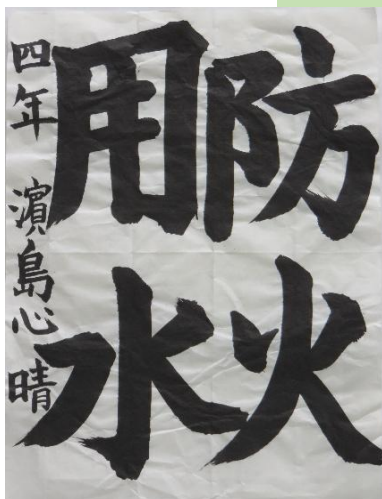 防火
用水
四年 濱島心晴